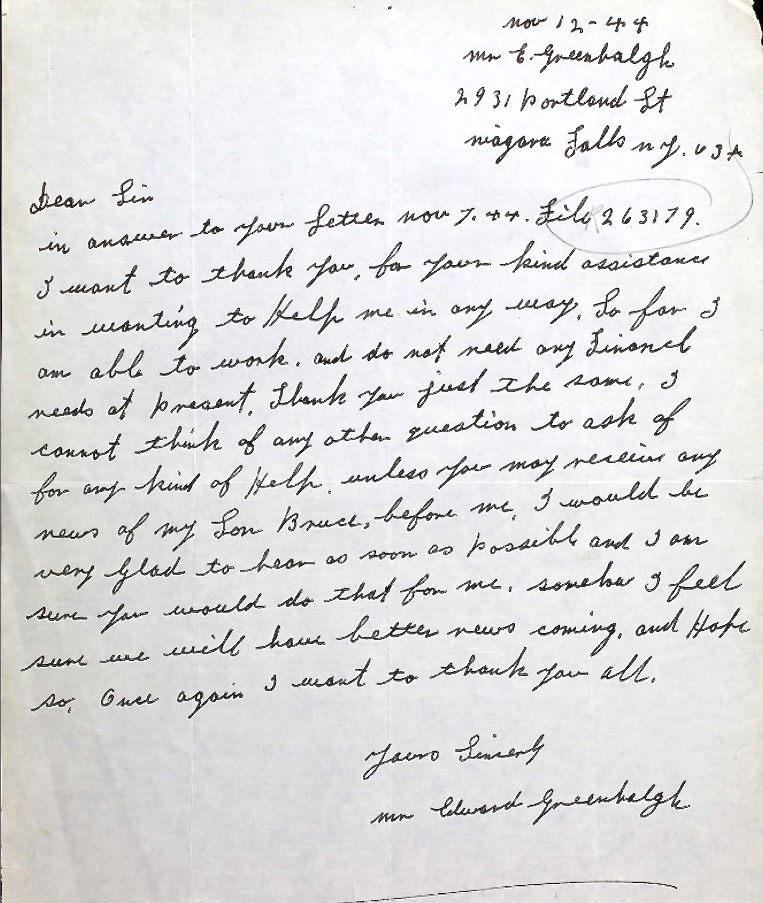 nov 12-44
mr E. Greenhalgh
2931 Portland St
niagara Falls n.y. USA
Dear Sir
in answer to your Letter nov 7. 44. File 263179.
I want to thank you, for your kind assistance
in wanting to Help me in any way. So far I
am able to work. and do not need any Financel
needs at present. Thank you just the same, I
cannot think of any other question to ask of
for any kind of Help. unless you may receive any
news of my Son Bruce, before me, I would be
very Glad to hear as soon as possible and I am
sure you would do that for me. somehow I feel
sure we will have better news coming. and Hope
so. Once again I want to thank you all.
Yours Sincerly
mr Edward Greenhalgh